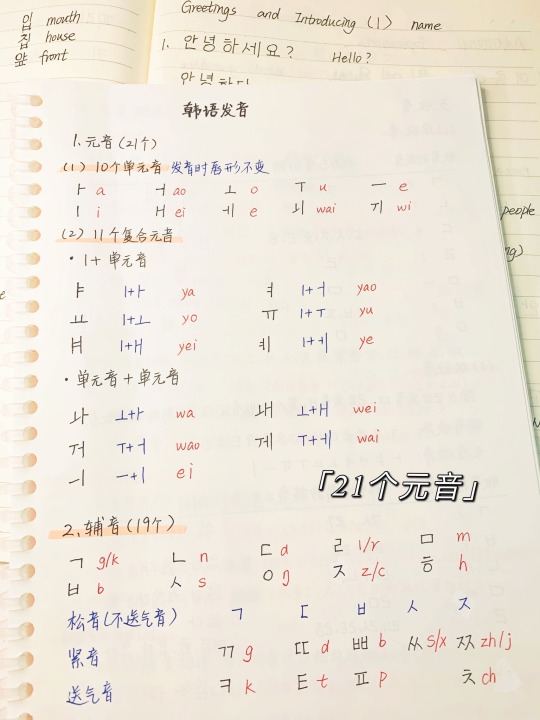 입 mouth
집 house
앞 front
Greetings and Introducing (1) name
1. 안녕하세요? Hello?
안녕하다
韩语发音
1.元音(21个)
(1) 10个单元音 发音时唇形不变
ㅏ a ㅓ ao ㅗ o ㅜ u ㅡ e
ㅣ i ㅐ ei ㅔ e ㅚ wai ㅟ wi
(2) 11个复合元音
• ㅣ+ 单元音
ㅑ ㅣ+ㅏ ya ㅕ ㅣ+ㅓ yao
ㅛ ㅣ+ㅗ yo ㅠ ㅣ+ㅜ yu
ㅒ ㅣ+ㅐ yei ㅖ ㅣ+ㅔ ye
• 单元音 + 单元音
ㅘ ㅗ+ㅏ wa ㅙ ㅗ+ㅐ wei
ㅝ ㅜ+ㅓ wao ㅞ ㅜ+ㅔ wai
ㅢ ㅡ+ㅣ ei
「21个元音」
2.辅音(19个)
ㄱ g/k ㄴ n ㄷ d ㄹ l/r ㅁ m
ㅂ b ㅅ s ㅇ ŋ ㅈ z/c ㅎ h
松音(不送气音) ㄱ ㄷ ㅂ ㅅ ㅈ
紧音 ㄲ g ㄸ d ㅃ b ㅆ s/x ㅉ zh/j
送气音 ㅋ k ㅌ t ㅍ p ㅊ ch
people